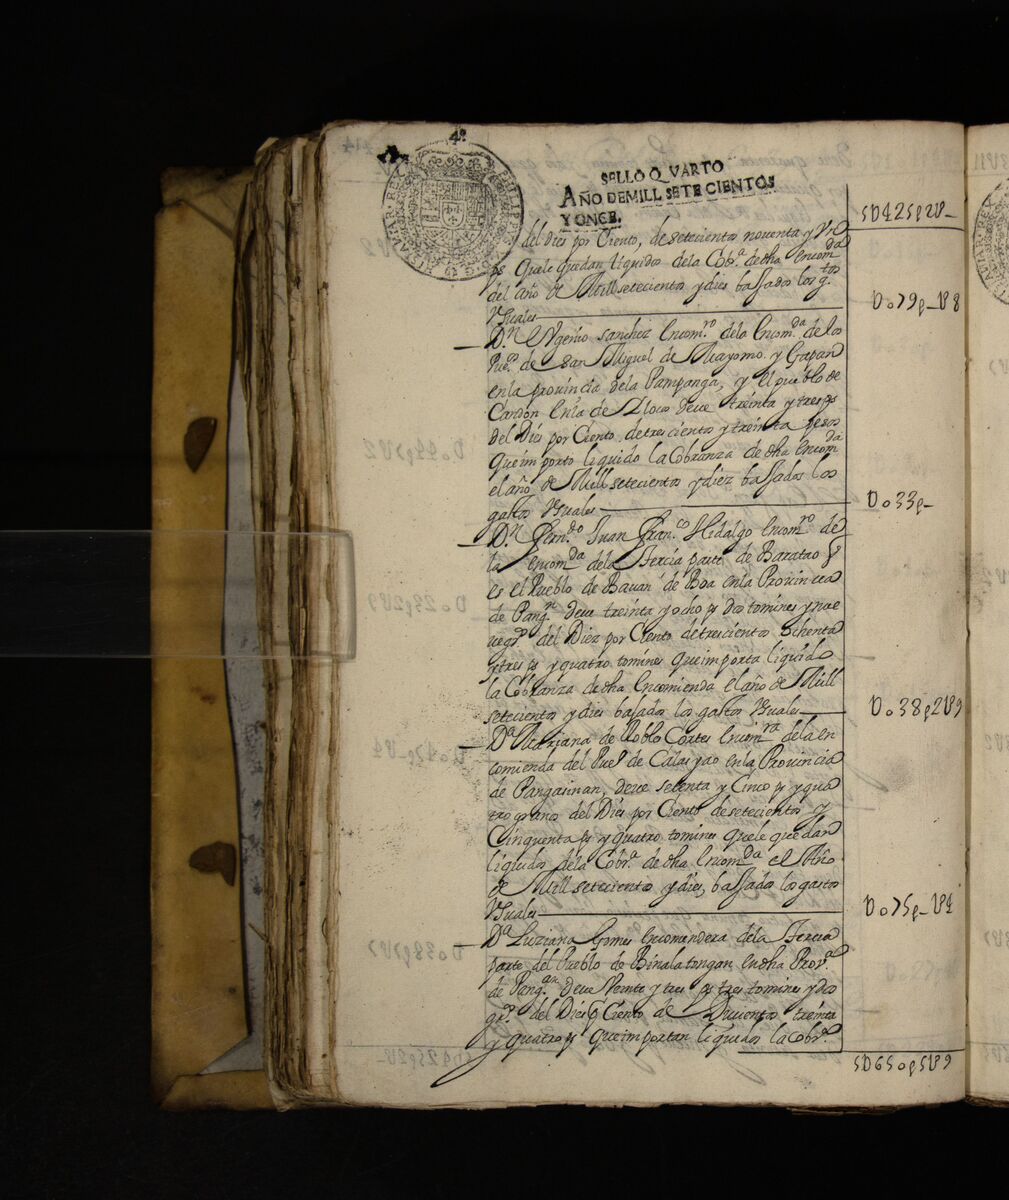 4º
SELLO Q VARTO
AÑO DE MILL SETECIENTOS
Y ONCE.
5D425p2U_
del dies por Ciento, de setecientos noventa y Vn
ps Quele quedan liquidos dela Cobr.ª de dha encomda
del año de Mill setecientos y dies bassados los g.tos
Vsuales
Do79p_U8
D.n Vgenio Sanchez Encom.ro dela Encom.da de los
Pue.os de san Miguel de Mayomo y Gapan
en la provincia dela Pampanga, y el pueblo de
Candon en la de Ylocos deve treinta y tres ps
del Dies por Ciento de trescientos y treinta pesos
Que importo liquido la Cobranza de dha encomda
el año de Mill setecientos y diez bassados los
gastos Vsuales
Do33p_
D.n Fern.do Juan Fran.co Hidalgo encom.ro de
la encom.da dela Tercia parte de
es el Pueblo de de Boa en la Provincia
de Pang.n Deve treinta y ocho ps dos tomines y nue
ve gr.s del Diez por Ciento de trescientos Ochenta
y tres ps y quatro tomines que importa liquido
la Cobranza de dha Encomienda el año de Mill
setecientos y dies bassados los gastos Vsuales
Do38p2U9
D.ª Mariana de Roblo Cortes encom.ra dela en
comienda del Pue.o de Calasyao en la Provincia
de Pangasinan, deve setenta y Cinco ps y qua
tro granos del Dies por Ciento de setecientos y
Cinquenta ps y quatro tomines quele quedan
liquidos dela Cobr.ª de dha Encom.da el Año
de Mill setecientos y dies, bassados los gastos
Vsuales
Do75p_U4
D.ª Luziana Gomes encomendera dela Tercia
parte del Pueblo de Binalatongan en dha Prov.ª
de Pang.an Deve Veinte y tres ps tres tomines y dos
gr.s del Dies p Ciento de Ducientos treinta
y quatro ps que importan liquidos la Cobr.ª
5D650p5U9